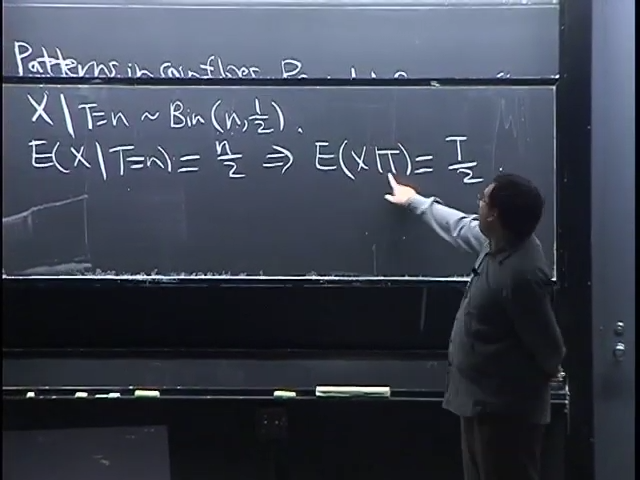 Patterns in coin flips
X | T=n ~ Bin(n, 1/2).
E(X | T=n) = n/2 ⇒ E(X|T) = T/2